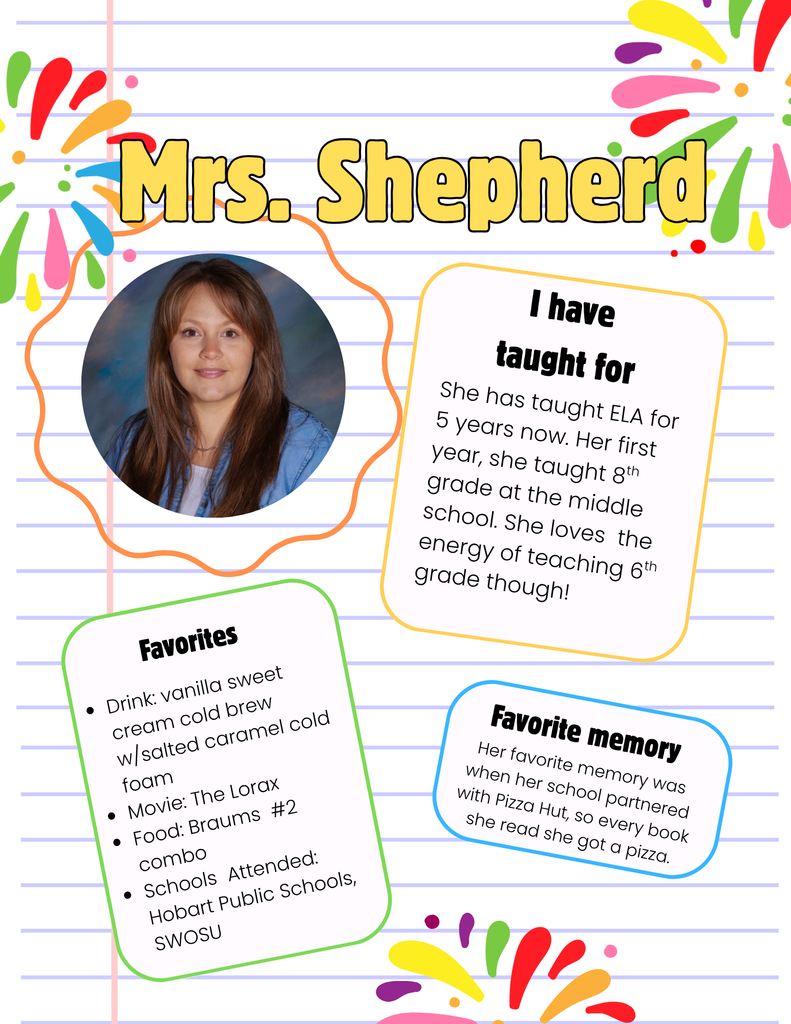 Mrs. Shepherd
I have
taught for
She has taught ELA for
5 years now. Her first
year, she taught 8th
grade at the middle
school. She loves  the
energy of teaching 6th
grade though!
Favorites
• Drink: vanilla sweet
cream cold brew
w/salted caramel cold
foam
• Movie: The Lorax
• Food: Braums  #2
combo
• Schools  Attended:
Hobart Public Schools,
SWOSU
Favorite memory
Her favorite memory was
when her school partnered
with Pizza Hut, so every book
she read she got a pizza.